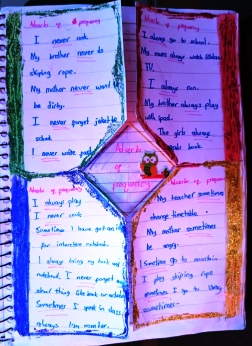 Adverbs of frequency
I never cook.
My brother never do
skiping rope.
My mother never want
be dirty.
I never forget
school.
I never write
Adverbs of frequency
I always go to school.
My mom always watch
TV.
I always run.
My brother always play
with ipad.
The girls always
book.
Adverbs
of
frequency
Adverbs of frequency
I always play
I never cook
Sometimes I have got an
for interactive notebook.
I always bring my book and
notebook. I never forget
Sometimes I speak in class.
always
Adverbs of frequency
My teacher sometimes
change timetable.
My mother sometimes
be angry.
I Sometimes go to mountain
I play skiping rope
sometimes. I go to library
sometimes.